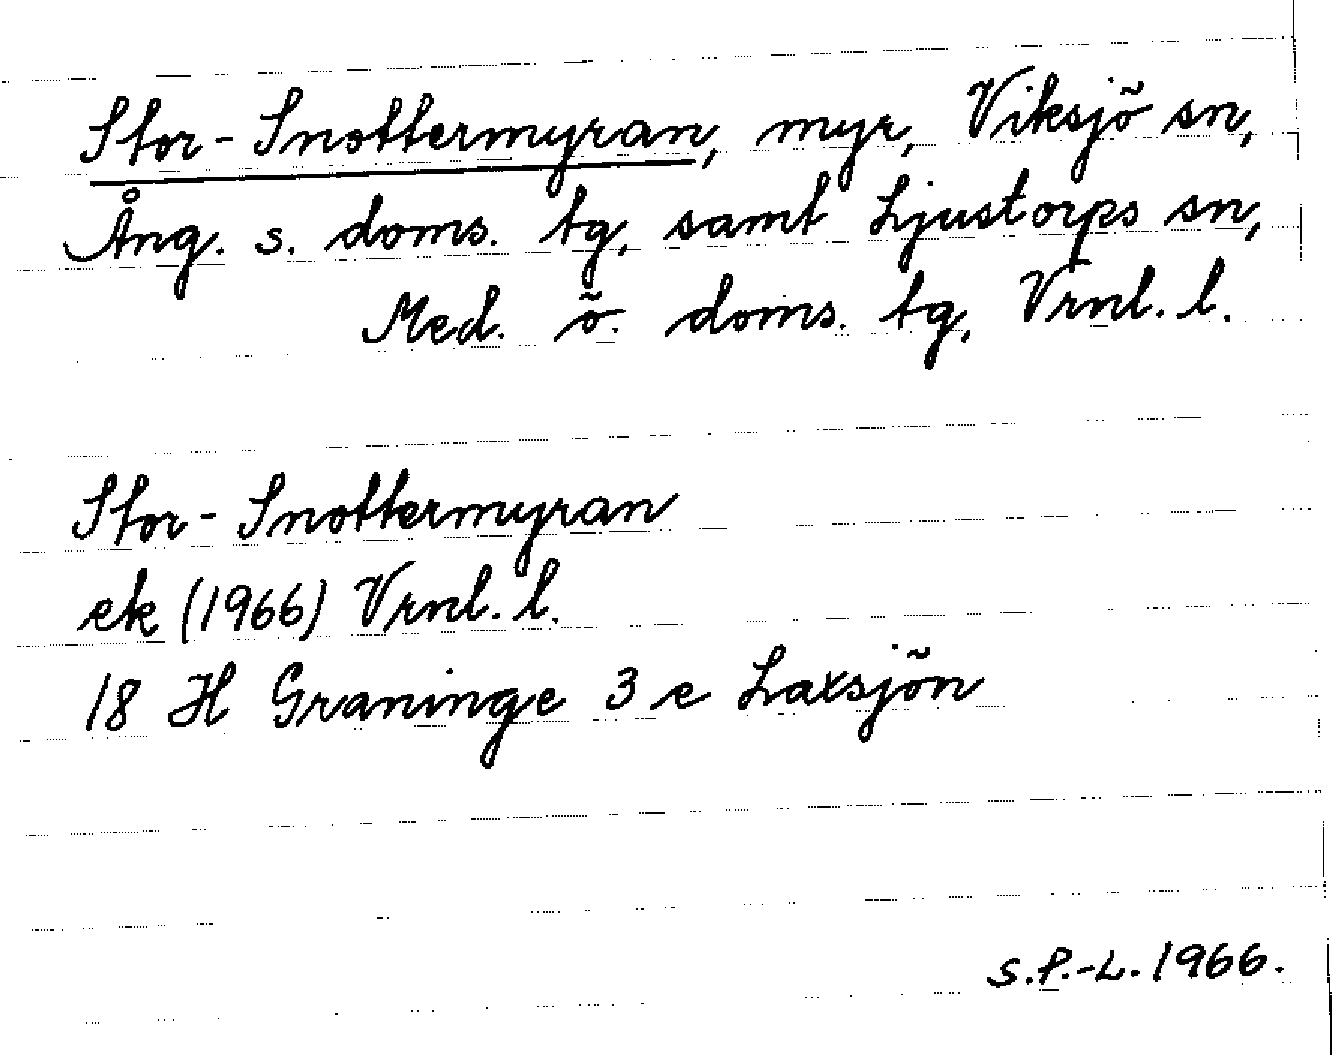 Stor-Snottermyran, myr, Viksjö sn,
Ång. s. doms. tg, samt Ljustorps sn,
Med. ö. doms. tg, Vrnl. l.
Stor-Snottermyran
ek (1966) Vrnl. l.
18 H Graninge 3 e Laxsjön
S.P.-L. 1966.